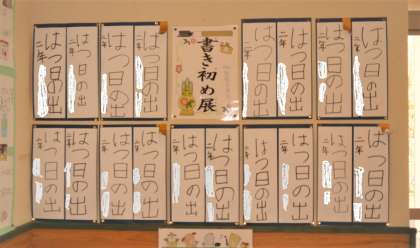 はつ日の出
二年
はつ日の出
二年
はつ日の出
二年
はつ日の出
二年
書き初め展
はつ日の出
二年
はつ日の出
二年
はつ日の出
二年
はつ日の出
二年
はつ日の出
二年
はつ日の出
二年
はつ日の出
二年
はつ日の出
二年
はつ日の出
二年
はつ日の出
二年
はつ日の出
二年
はつ日の出
二年
はつ日の出
二年
はつ日の出
二年